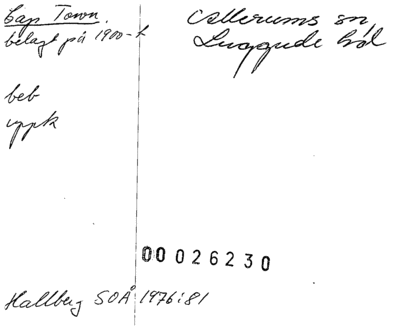 Cap Town.
belagt på 1900-t
beb
uppk
Allerums sn,
Luggude hd
00026230
Hallberg SOÅ 1976:81